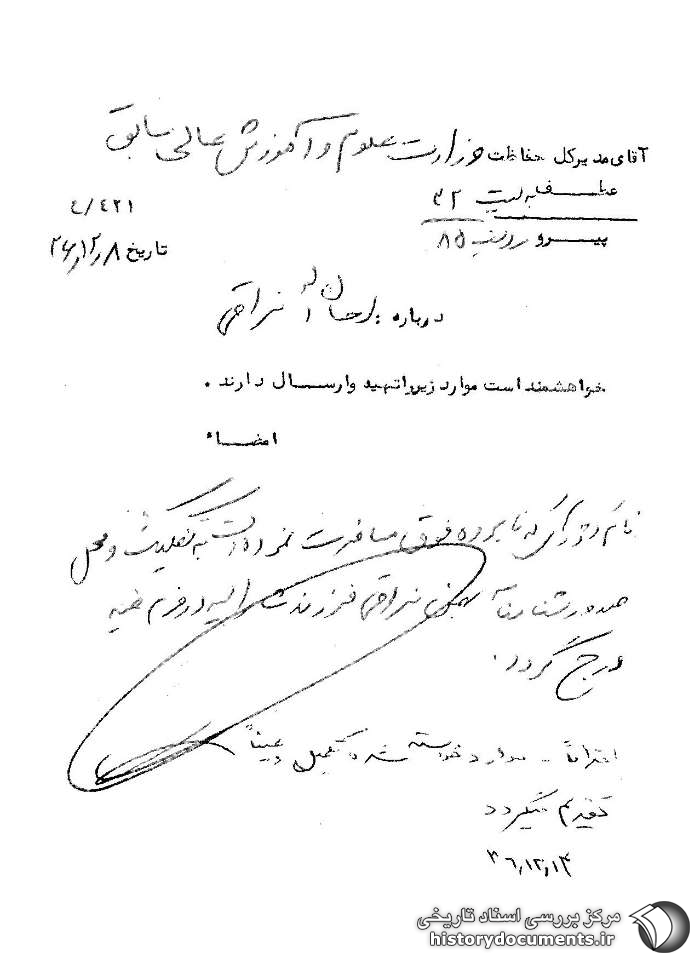 آقای مدیرکل حفاظت وزارت علوم و آموزش عالی سابق
عطف به لیست ۳۲
۴/۴۲۱
پیرو ردیف ۸۵
تاریخ ۳۶/۱۲/۸
درباره احسان اله نراقی
خواهشمند است موارد زیر را تهیه و ارسال دارند.
امضاء
نام کشورهائی که نامبرده فوق مسافرت نموده است به تفکیک و محل
صدور شناسنامه نراقی فرزند مشار الیه در فرم ضمیمه
درج گردد.
احتراماً - موارد خواسته شده تکمیل و عیناً
تقدیم میگردد
۳۶/۱۲/۱۴
مرکز بررسی اسناد تاریخی
historydocuments.ir